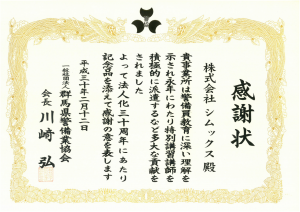 感謝状
株式会社 シムックス 殿
貴事業所は警備員教育に深い理解を
示され永年にわたり特別講習講師を
積極的に派遣するなど多大な貢献を
されました
よって法人化三十周年にあたり
記念品を添えて感謝の意を表します
平成三十年二月十二日
一般社団法人 群馬県警備業協会
会長 川﨑 弘